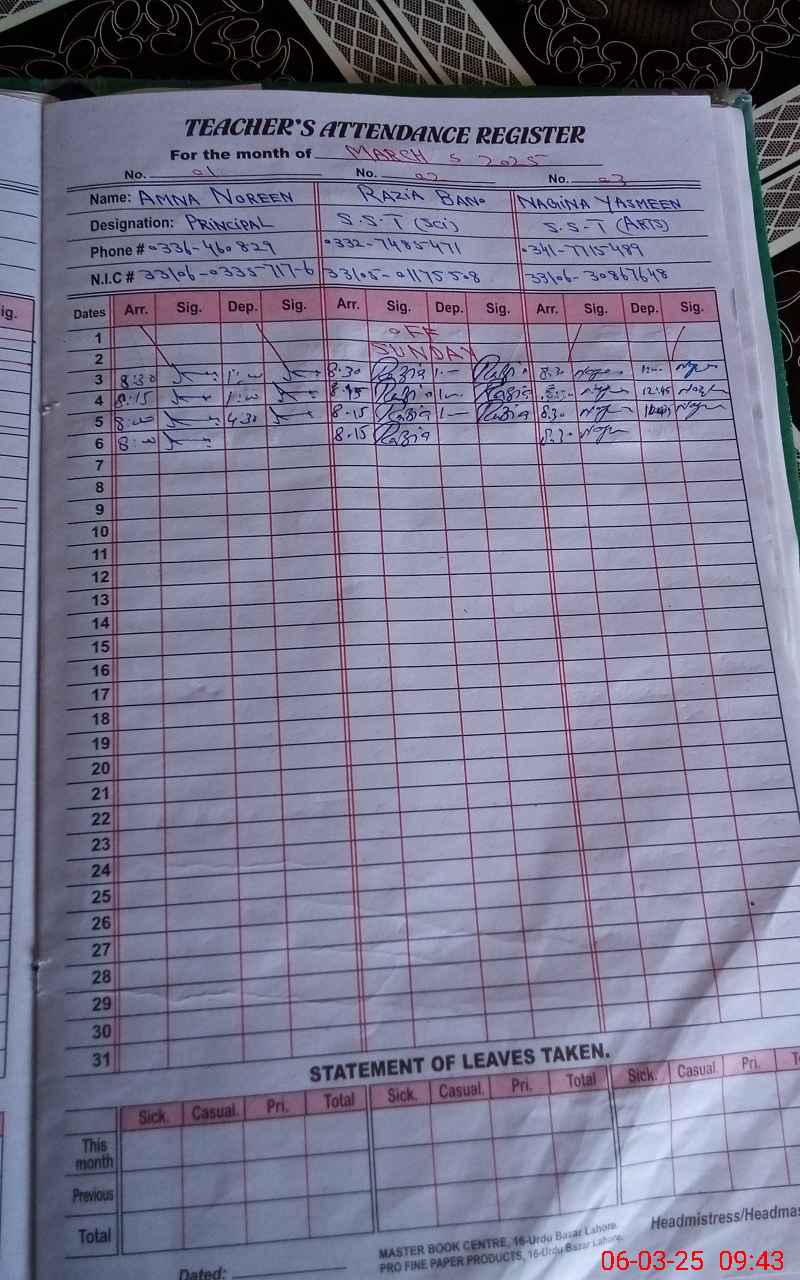 TEACHER'S ATTENDANCE REGISTER
For the month of MARCH 5 2025
No. 01 No. 02 No. 03
Name: AMNA NOREEN RAZIA BANO NAGINA YASMEEN
Designation: PRINCIPAL S.S.T (Sci) S.S.T (ARTS)
Phone # 0336-460829 0332-7485471 0341-7715489
N.I.C # 33106-0335717-6 33105-01175508 33106-30867648
ig.
Dates Arr. Sig. Dep. Sig. Arr. Sig. Dep. Sig. Arr. Sig. Dep. Sig.
1 OFF
2 SUNDAY
3 8:30 1:00 8.30 Razia 1:— Razia 8.30
4 8:15 1:00 8.15 Razia 1:— Razia 8:30 12:45
5 8:00 4:30 8.15 Razia 1— Razia 8.30
6 8:00 8.15 Razia 8.30
7
8
9
10
11
12
13
14
15
16
17
18
19
20
21
22
23
24
25
26
27
28
29
30
31
STATEMENT OF LEAVES TAKEN.
Sick. Casual. Pri. Total Sick. Casual. Pri. Total Sick. Casual Pri.
This month
Previous
Total
Dated:
MASTER BOOK CENTRE, 16-Urdu Bazar Lahore.
PRO FINE PAPER PRODUCTS, 16-Urdu Bazar Lahore.
Headmistress/Headmas
06-03-25 09:43